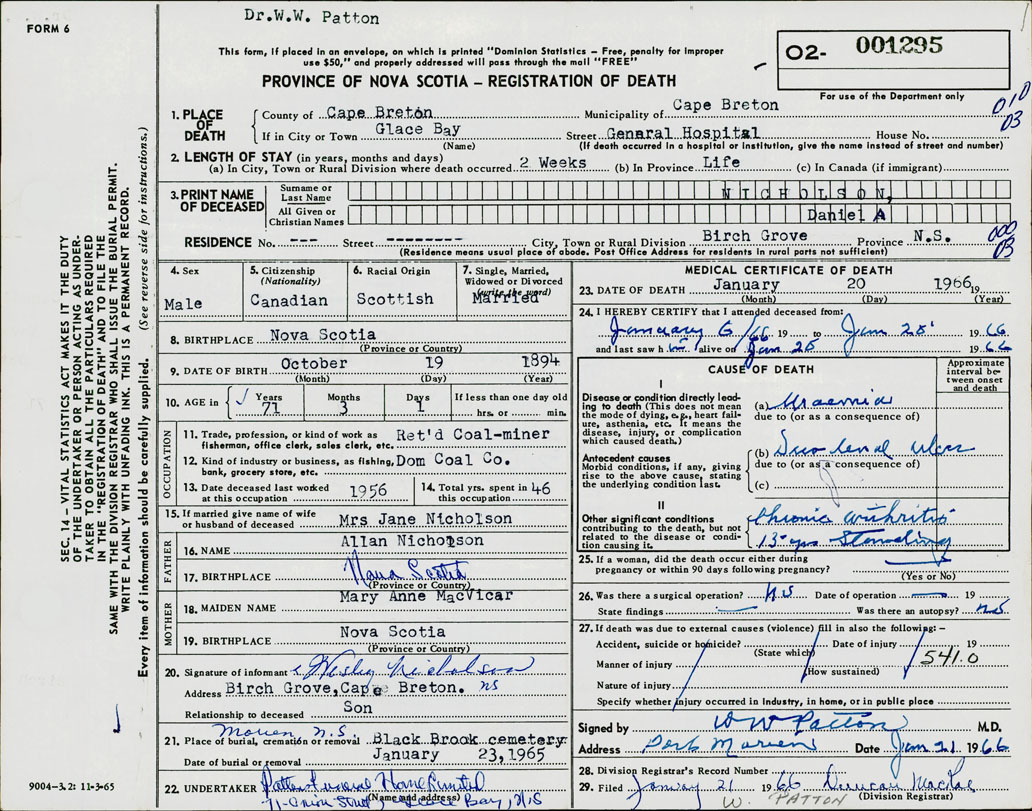 Dr.W.W. Patton
FORM 6
This form, if placed in an envelope, on which is printed "Dominion Statistics – Free, penalty for improper
use $50," and properly addressed will pass through the mail "FREE"
O2- 001295
For use of the Department only
PROVINCE OF NOVA SCOTIA – REGISTRATION OF DEATH
010
03
1. PLACE OF DEATH
County of Cape Breton Municipality of Cape Breton
If in City or Town Glace Bay Street Genaral Hospital House No.
(Name) (If death occurred in a hospital or institution, give the name instead of street and number)
2. LENGTH OF STAY (in years, months and days)
(a) In City, Town or Rural Division where death occurred 2 Weeks (b) In Province Life (c) In Canada (if immigrant)
3. PRINT NAME OF DECEASED
Surname or Last Name NICHOLSON,
All Given or Christian Names Daniel A
RESIDENCE No. --- Street -------- City, Town or Rural Division Birch Grove Province N.S.
000
03
(Residence means usual place of abode. Post Office Address for residents in rural parts not sufficient)
4. Sex
Male
5. Citizenship
(Nationality)
Canadian
6. Racial Origin
Scottish
7. Single, Married,
Widowed or Divorced
(write the word)
Married
8. BIRTHPLACE Nova Scotia
(Province or Country)
9. DATE OF BIRTH October 19 1894
(Month) (Day) (Year)
10. AGE in Years 71 Months 3 Days 1 If less than one day old
hrs. or min.
OCCUPATION
11. Trade, profession, or kind of work as Ret'd Coal-miner
fisherman, office clerk, sales clerk, etc.
12. Kind of industry or business, as fishing, Dom Coal Co.
bank, grocery store, etc.
13. Date deceased last worked
at this occupation 1956
14. Total yrs. spent in 46
this occupation
15. If married give name of wife
or husband of deceased Mrs Jane Nicholson
FATHER
16. NAME Allan Nicholson
17. BIRTHPLACE Nova Scotia
(Province or Country)
MOTHER
18. MAIDEN NAME Mary Anne MacVicar
19. BIRTHPLACE Nova Scotia
(Province or Country)
20. Signature of informant Wesley Nicholson
Address Birch Grove, Cape Breton. NS
Relationship to deceased Son
Morien N.S.
21. Place of burial, cremation or removal Black Brook cemetery
Date of burial or removal January 23,1965
22. UNDERTAKER Patten Funeral Home Limited
(Name and address) 71 Union Street Glace Bay, N.S
MEDICAL CERTIFICATE OF DEATH
23. DATE OF DEATH January 20 1966 19
(Month) (Day) (Year)
24. I HEREBY CERTIFY that I attended deceased from:
January 6/66 19 to Jan 20 1966
and last saw him alive on Jan 20 1966
CAUSE OF DEATH
Approximate interval between onset and death
I
Disease or condition directly leading to death (This does not mean the mode of dying, e.g., heart failure, asthenia, etc. It means the disease, injury, or complication which caused death.)
(a) Uraemia
due to (or as a consequence of)
Antecedent causes
Morbid conditions, if any, giving rise to the above cause, stating the underlying condition last.
(b) Duodenal Ulcer
due to (or as a consequence of)
(c)
II
Other significant conditions contributing to the death, but not related to the disease or condition causing it.
Chronic arthritis
13 yrs Standing
25. If a woman, did the death occur either during
pregnancy or within 90 days following pregnancy?
(Yes or No)
26. Was there a surgical operation? No Date of operation 19
State findings Was there an autopsy? No
27. If death was due to external causes (violence) fill in also the following: –
Accident, suicide or homicide? Date of injury 19
(State which)
541.0
Manner of injury
(How sustained)
Nature of injury
Specify whether injury occurred in Industry, in home, or in public place
Signed by W W Patton M.D.
Address Port Morien Date Jan 21 1966
28. Division Registrar's Record Number
29. Filed January 21 1966 Duncan MacRae
(Division Registrar)
W. PATTON
SEC. 14 – VITAL STATISTICS ACT MAKES IT THE DUTY
OF THE UNDERTAKER OR PERSON ACTING AS UNDER-
TAKER TO OBTAIN ALL THE PARTICULARS REQUIRED
IN THE "REGISTRATION OF DEATH" AND TO FILE THE
SAME WITH THE DIVISION REGISTRAR WHO SHALL ISSUE THE BURIAL PERMIT.
WRITE PLAINLY WITH UNFADING INK. THIS IS A PERMANENT RECORD.
Every item of information should be carefully supplied. (See reverse side for instructions.)
9004-3.2: 11-3-65